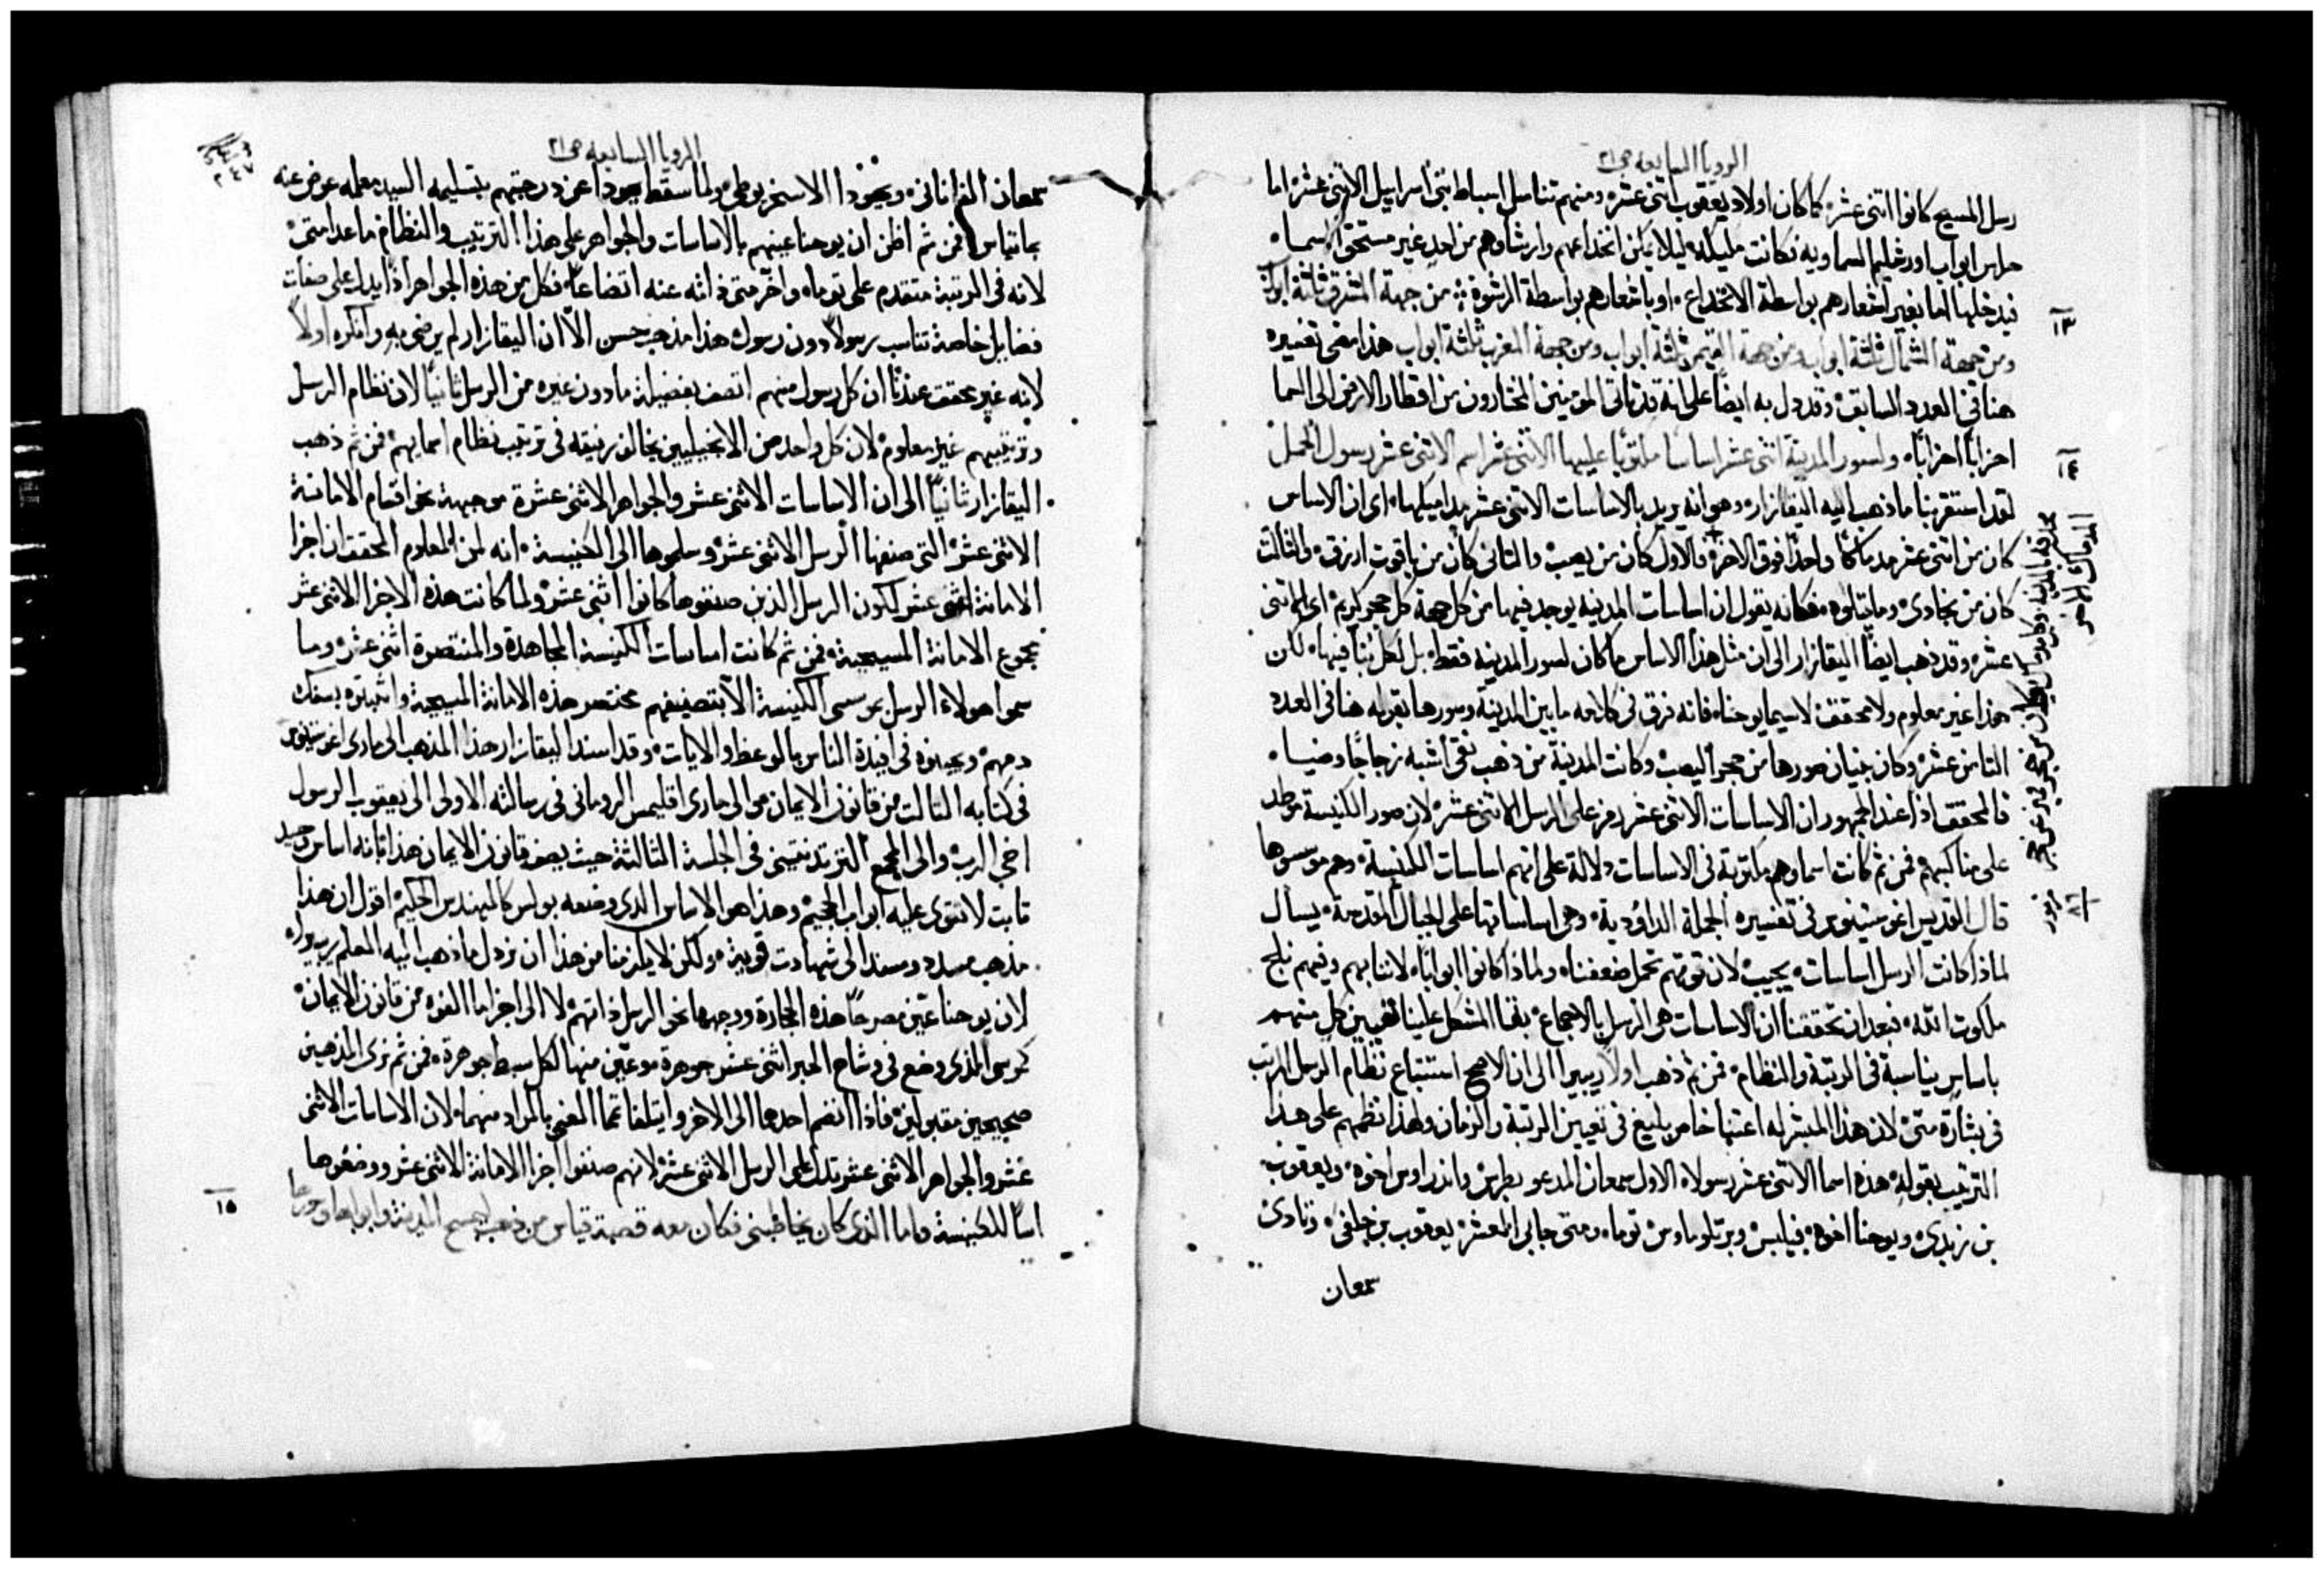 الرويا السابعه ص٢١
رسل المسيح كانوا اثنى عشر، كما كان اولاد يعقوب اثنى عشر، ومنهم تناسل اسباط بنى اسراييل الاثنى عشر، اما
حراس ابواب اورشليم السماويه فكانت مليكه ليلا يمكن انخداعهم وارتشاوهم من احد غير مستحق السماء
فيدخلها اما بغير اشعارهم بواسطة الانخداع، او باشعارهم بواسطة الرشوة؛ من جهة المشرق ثلثة ابواب
١٣
ومن جهة الشمال ثلثة ابواب ومن جهة التيمن ثلثة ابواب ومن جهة المغرب ثلثة ابواب هذا مضى تفسيره
هنا فى العدد السابق، وقد دل به ايضا على انة قد ياتى المومنين المختارون من اقطار الارض الى السما
احزابا احزابا، ولسور المدينة اثنى عشر اساسا مكتوبا عليها الاثنى عشر اسم الاثنى عشر رسول الحمل
١٤
لقد استقربنا ما ذهب اليه اليقازار، وهو انه يريد بالاساسات الاثنى عشر مداميكها، اى ان الاساس
كان من اثنى عشر مدماكا واحدا فوق الاخر، فالاول كان من يصب، والثانى كان من ياقوت ازرق، والثالث
كان من بجادى، وما يتلوه، فكانه يقول ان اساسات المدينه يوجد فيها من كل جهة كل حجر كريم، اى الاثنى
عشر، وقد ذهب ايضا اليقازار الى ان مثل هذا الاساس ما كان لسور المدينه فقط، بل لكل بنا فيها، لكن
هذا غير معلوم ولا محقق، لاسيما يوحنا، فانه فرق فى كلامه ما بين المدينة وسورها بقوله هنا فى العدد
الثامن عشر، وكان بنيان سورها من حجر اليصب، وكانت المدينة من ذهب نقى اشبه زجاجا وضياء
فالمحقق اذا عند الجمهور ان الاساسات الاثنى عشر رمز على الرسل الاثنى عشر، لان سور الكنيسة موطد
على مناكبهم فمن ثم كانت اسماوهم مكتوبة فى الاساسات دلالة على انهم اساسات الكنيسة، وهم موسسوها
قال القديس اغوستينوس فى تفسيره الجملة الداوُدية، وهى اساساتها على الجبال المقدسة، يسال
مزمور
٨٦
لماذا كانت الرسل اساسات، يجيب، لان قوتهم تحمل ضعفنا، ولماذا كانوا ابوابا، لاننا بهم وفيهم نلج
ملكوت الله، فبعد ان تحققنا ان الاساسات هى الرسل بالاجماع، بقا المشكل علينا تعيين كل منهم
باساس يناسبة فى الرتبة والنظام، فمن ثم ذهب اولا ريبيرا الى ان الاصح استتباع نظام الرسل المرتب
فى بشارة متى، لان هذا المبشر له اعتنا خاص بليغ فى تعيين الرتبة والزمان ولهذا نظمهم على هذا
الترتيب بقوله، هذه اسما الاثنى عشر رسولا، الاول سمعان المدعو بطرس، واندراوس اخوه، ويعقوب
بن زبدى، ويوحنا اخوه، فيلبس، وبرتلوماوس، توما، ومتى جابى المعشر، يعقوب بن حلفى، وتادى
سمعان
الرويا السابعه ص٢١
سمعان القانانى، ويهودا الاسخريوطى، ولما سقط يهودا عن درجتهم بتسليمه السيد معلمه عوض عنه
بماتياس، فمن ثم اظن ان يوحنا عينهم بالاساسات والجواهر على هذا الترتيب والنظام ما عدا متى،
لانه فى الرتبة متقدم على توما، واخر متى ذاته عنه اتضاعا، فكل من هذه الجواهر اذا يدل على صفات
فضايل خاصة تناسب رسولا دون رسول، هذا مذهب حسن الا ان اليقازار لم يرضى به، وانكره اولا
لانه غير محقق عندنا ان كل رسول منهم اتصف بفضيلة ما دون غيره من الرسل، ثانيا لان نظام الرسل
وترتيبهم غير معلوم، لان كل واحد من الانجيليين يخالف رفيقه فى ترتيب نظام اسمايهم، فمن ثم ذهب
اليقازار ثانيا الى ان الاساسات الاثنى عشر والجواهر الاثنى عشرة موجهة نحو اقسام الامانة
الاثنى عشر، التى صنفها الرسل الاثنى عشر، وسلموها الى الكنيسة، انه لمن المعلوم المحقق ان اجزا
الامانة اثنى عشر لكون الرسل الذين صنفوها كانوا اثنى عشر، ولما كانت هذه الاجزا الاثنى عشر
مجموع الامانة المسيحية، فمن ثم كانت اساسات الكنيسة المجاهدة والمنتصرة اثنى عشر، وما
سموا هولاء الرسل موسسى الكنيسة الا بتصنيفهم مختصر هذه الامانة المسيحية، واثبتوه بسفك
دمهم، وبثوه فى افيدة الناس بالوعظ والايات، وقد اسند اليقازار هذا المذهب الى مارى اغوستينوس
فى كتابه الثالث من قانون الايمان، والى مارى اقليمس الرومانى فى رسالته الاولى الى يعقوب الرسول
اخى الرب، والى المجمع التريدنتينى فى الجلسة الثالثة حيث يصف قانون الايمان هذا بانه اساس وحيد
ثابت لا تقوى عليه ابواب الجحيم، وهذا هو الاساس الذى وضعه بولس كالمهندس الحكيم، اقول ان هذا
مذهب مسدد ومسند الى شهادت قوية، ولكن لا يلزمنا من هذا ان نرذل ما ذهب اليه المعلم ريبيرا،
لان يوحنا عين مصرحا هذه الحجارة ووجهها نحو الرسل ذاتهم، لا الى اجزا ما الفوه من قانون الايمان،
كرسى الذى وضع فى وشاح الحبر اثنى عشر جوهرة، وعين منها لكل سبط جوهرة، فمن ثم نرى المذهبين
صحيحين مقبولين، فاذا انضم احدهما الى الاخر وايتلفا تما المعنى بالمراد منهما، لان الاساسات الاثنى
عشر والجواهر الاثنى عشر تدل على الرسل الاثنى عشر، لانهم صنفوا اجزا الامانة الاثنى عشر ووضعوها
اسا للكنيسة، واما الذى كان يخاطبنى فكان معه قصبة قياس من ذهب ليمسح المدينة وابوابها وسورها
١٥